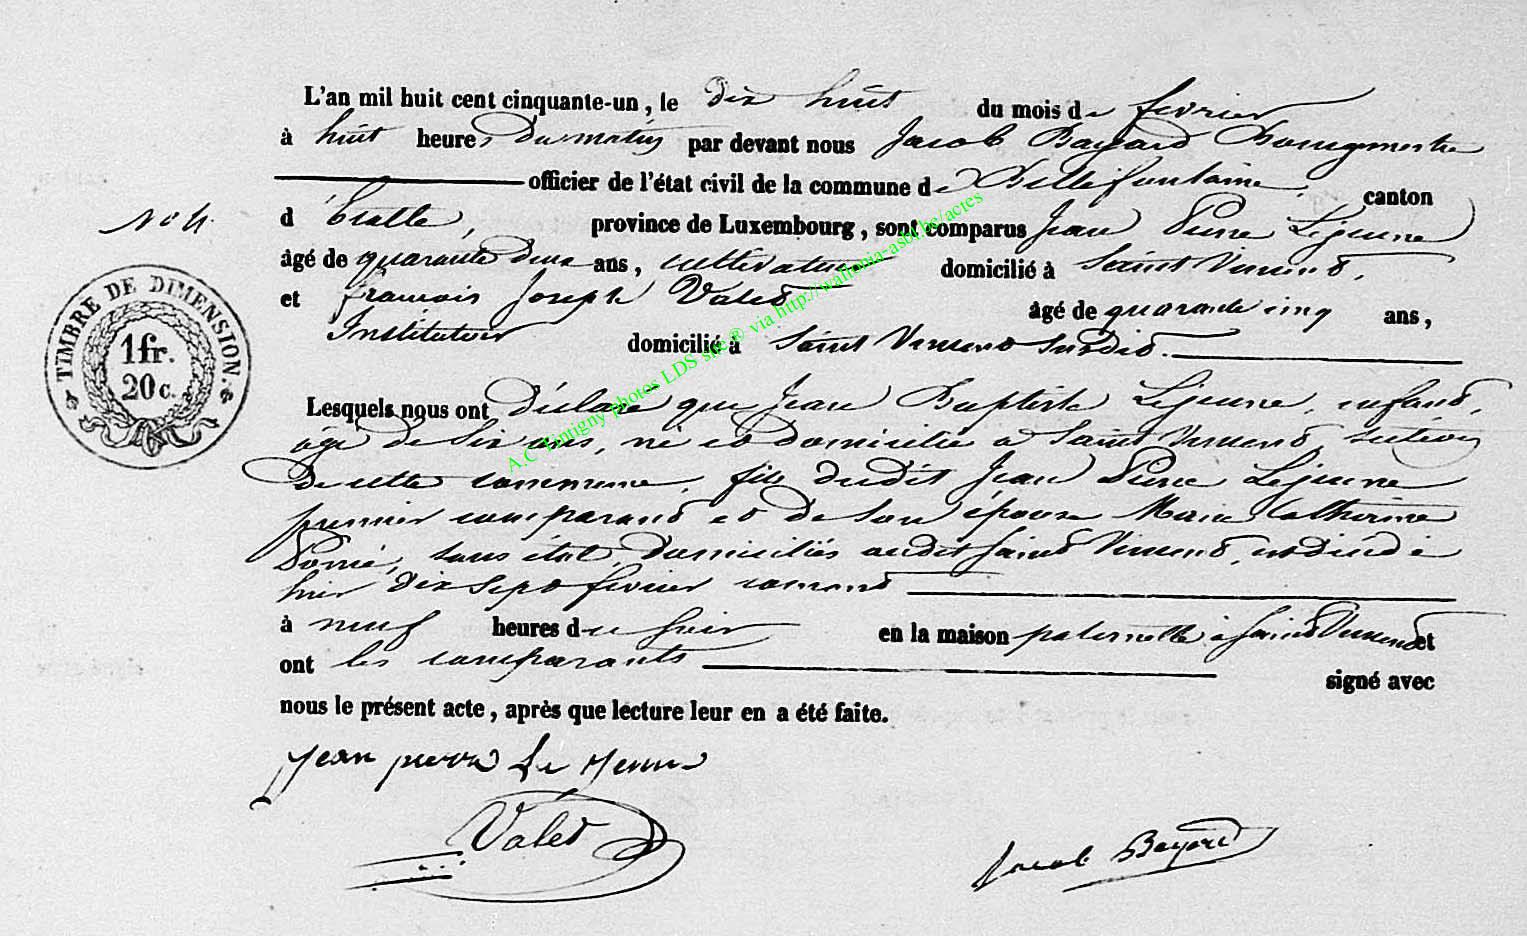 L'an mil huit cent cinquante-un, le dix huit du mois de fevrier
à huit heures du matin par devant nous Jacob Bayard Bourgmestre
officier de l'état civil de la commune de Bellefontaine, canton
d'Etalle, province de Luxembourg, sont comparus Jean Pierre Lejeune
âgé de quarante deux ans, cultivateur domicilié à Saint Vincent,
et françois Joseph Valet âgé de quarante cinq ans,
Instituteur domicilié à Saint Vincent susdit.
Lesquels nous ont déclaré que Jean Baptiste Lejeune enfant,
âgé de six ans, né et domicilié à Saint Vincent, section
de cette commune, fils dudit Jean Pierre Lejeune
premier comparant et de son épouse Marie Catherine
sans état, domiciliés audit Saint Vincent, est décédé
hier dix sept fevrier courant
à neuf heures du soir en la maison paternelle à Saint Vincent et
ont les comparants signé avec
nous le présent acte, après que lecture leur en a été faite.
Jean pierre Le Jeune
Valet
Jacob Bayard
No 4.
TIMBRE DE DIMENSION.
1 fr.
20 c.
A.C Tintigny photos LDS site® via http://wallonia-asbl.be/actes